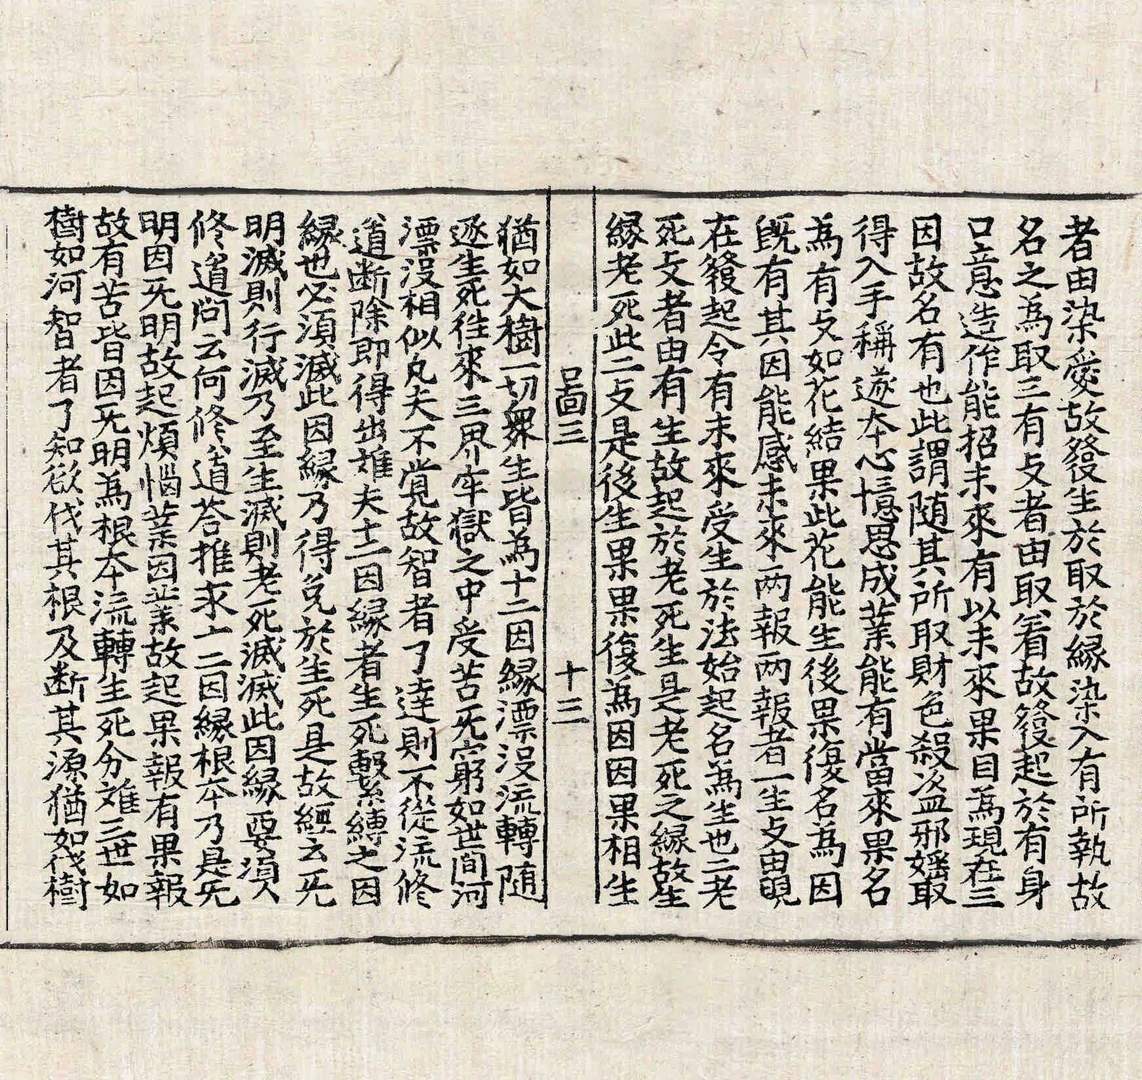 者由染愛故發生於取於縁染入有所執故
名之為取三有攴者由取着故發起於有身
口意造作能招未來有以未來果目為現在三
因故名有也此謂随其所取財色殺盗邪婬取
得入手稱遂本心憶恩成業能有當來果名
為有攴如花結果此花能生後果復名為因
既有其因能感未來兩報兩報者一生攴由現
在發起令有未來受生於法始起名為生也二老
死攴者由有生故起於老死生是老死之縁故生
縁老死此二攴是後生果果復為因因果相生
㘝三
十三
猶如大樹一切衆生皆為十二因縁漂没流轉随
逐生死往來三界牢獄之中受苦旡窮如世間河
漂没相似凡夫不覚故智者了達則不從流修
道断除即得出離夫十二因縁者生死繫縛之因
縁也必須滅此因縁乃得免於生死是故經云旡
明滅則行滅乃至生滅則老死滅滅此因縁要須人
修道問云何修道荅推求十二因縁根本乃是旡
明因旡明故起煩惱業因業故起果報有果報
故有苦皆因旡明為根本流轉生死分雉三世如
樹如河智者了知欲伐其根及断其源猶如伐樹